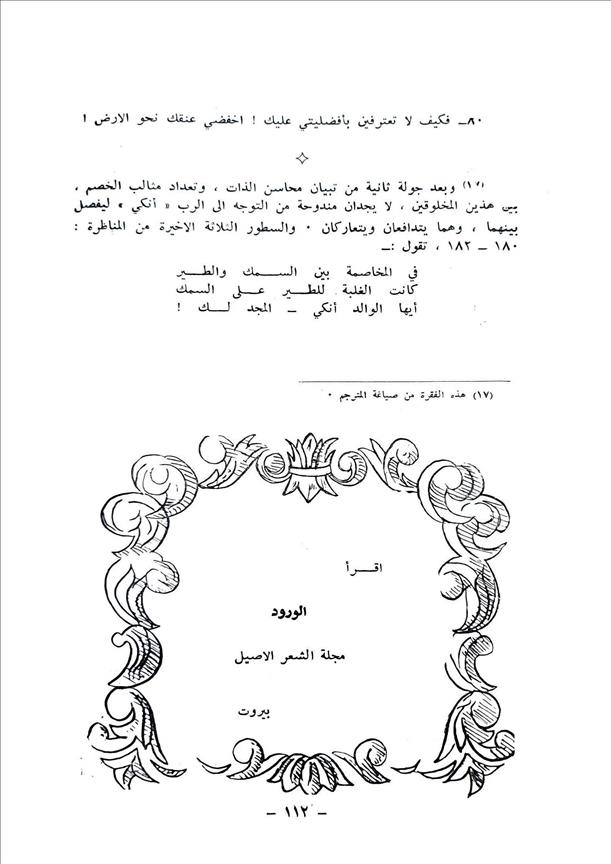 ٨٠ـ فكيف لا تعترفين بأفضليتي عليك ! اخفضي عنقك نحو الارض !
(١٧) وبعد جولة ثانية من تبيان محاسن الذات ، وتعداد مثالب الخصم ،
بين هذين المخلوقين ، لا يجدان مندوحة من التوجه الى الرب « أنكي » ليفصل
بينهما ، وهما يتدافعان ويتعاركان ٠ والسطور الثلاثة الاخيرة من المناظرة :
١٨٠ ــ ١٨٢ ، تقول :ــ
في المخاصمة بين الســمك والطــير
كانت الغلبة للطــير عــلى السمك
أيها الوالد أنكي ــ المجد لــك !
(١٧) هذه الفقرة من صياغة المترجم ٠
اقــرأ
الورود
مجلة الشعر الاصيل
بيروت
ــ ١١٢ ــ